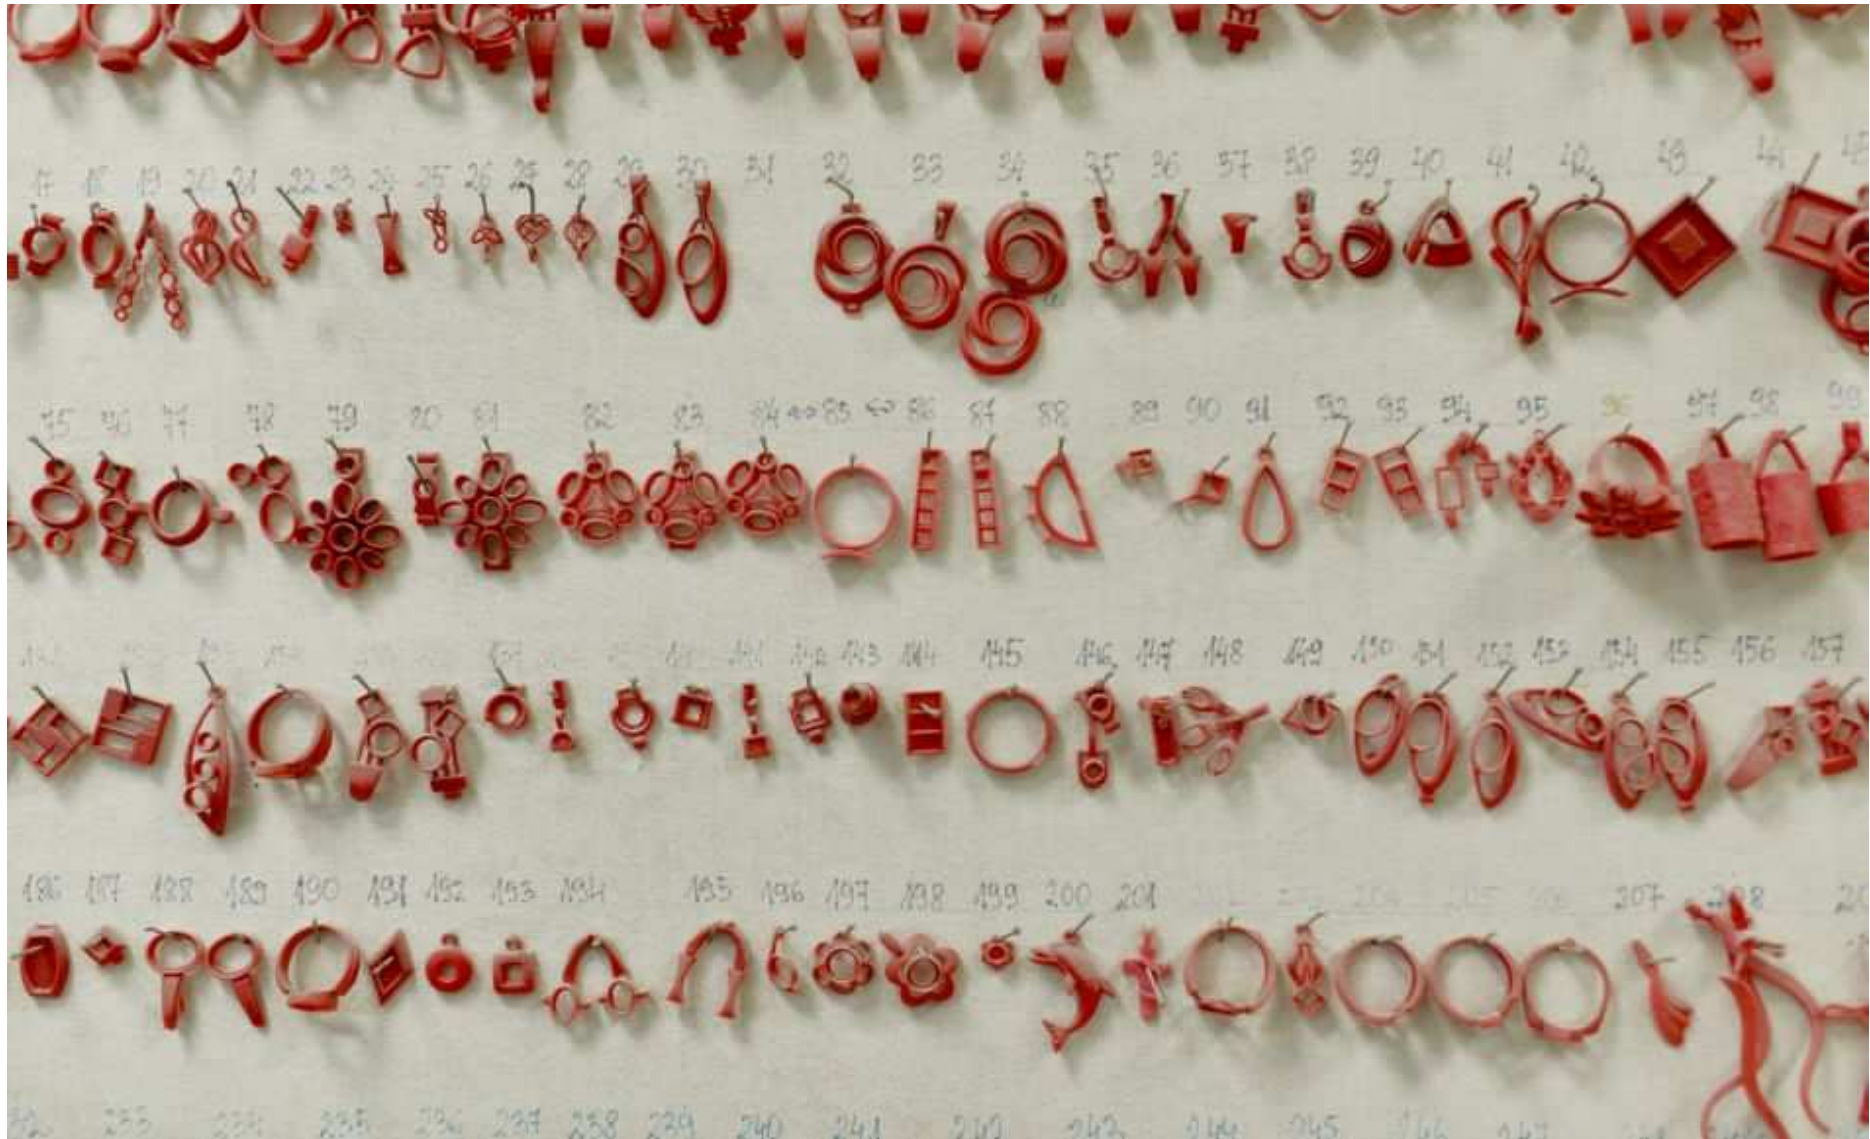 17 18 19 20 21 22 23 24 25 26 27 28 29 30 31 32 33 34 35 36 37 38 39 40 41 42 43 44 45
75 76 77 78 79 80 81 82 83 84 ↔ 85 ↔ 86 87 88 89 90 91 92 93 94 95 96 97 98 99
137 141 142 143 144 145 146 147 148 149 150 151 152 153 154 155 156 157
186 187 188 189 190 191 192 193 194 195 196 197 198 199 200 201 204 205 206 207 208
233 234 235 236 237 238 239 240 241 242 243 244 245 246 247